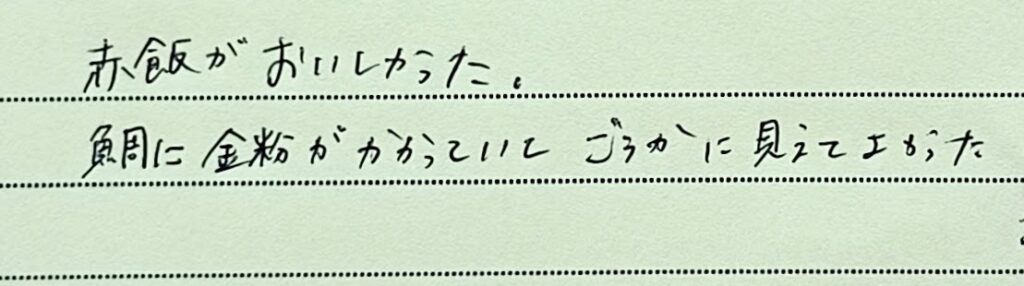 赤飯がおいしかった。
鯛に金粉がかかっていて ごうかに見えてよかった